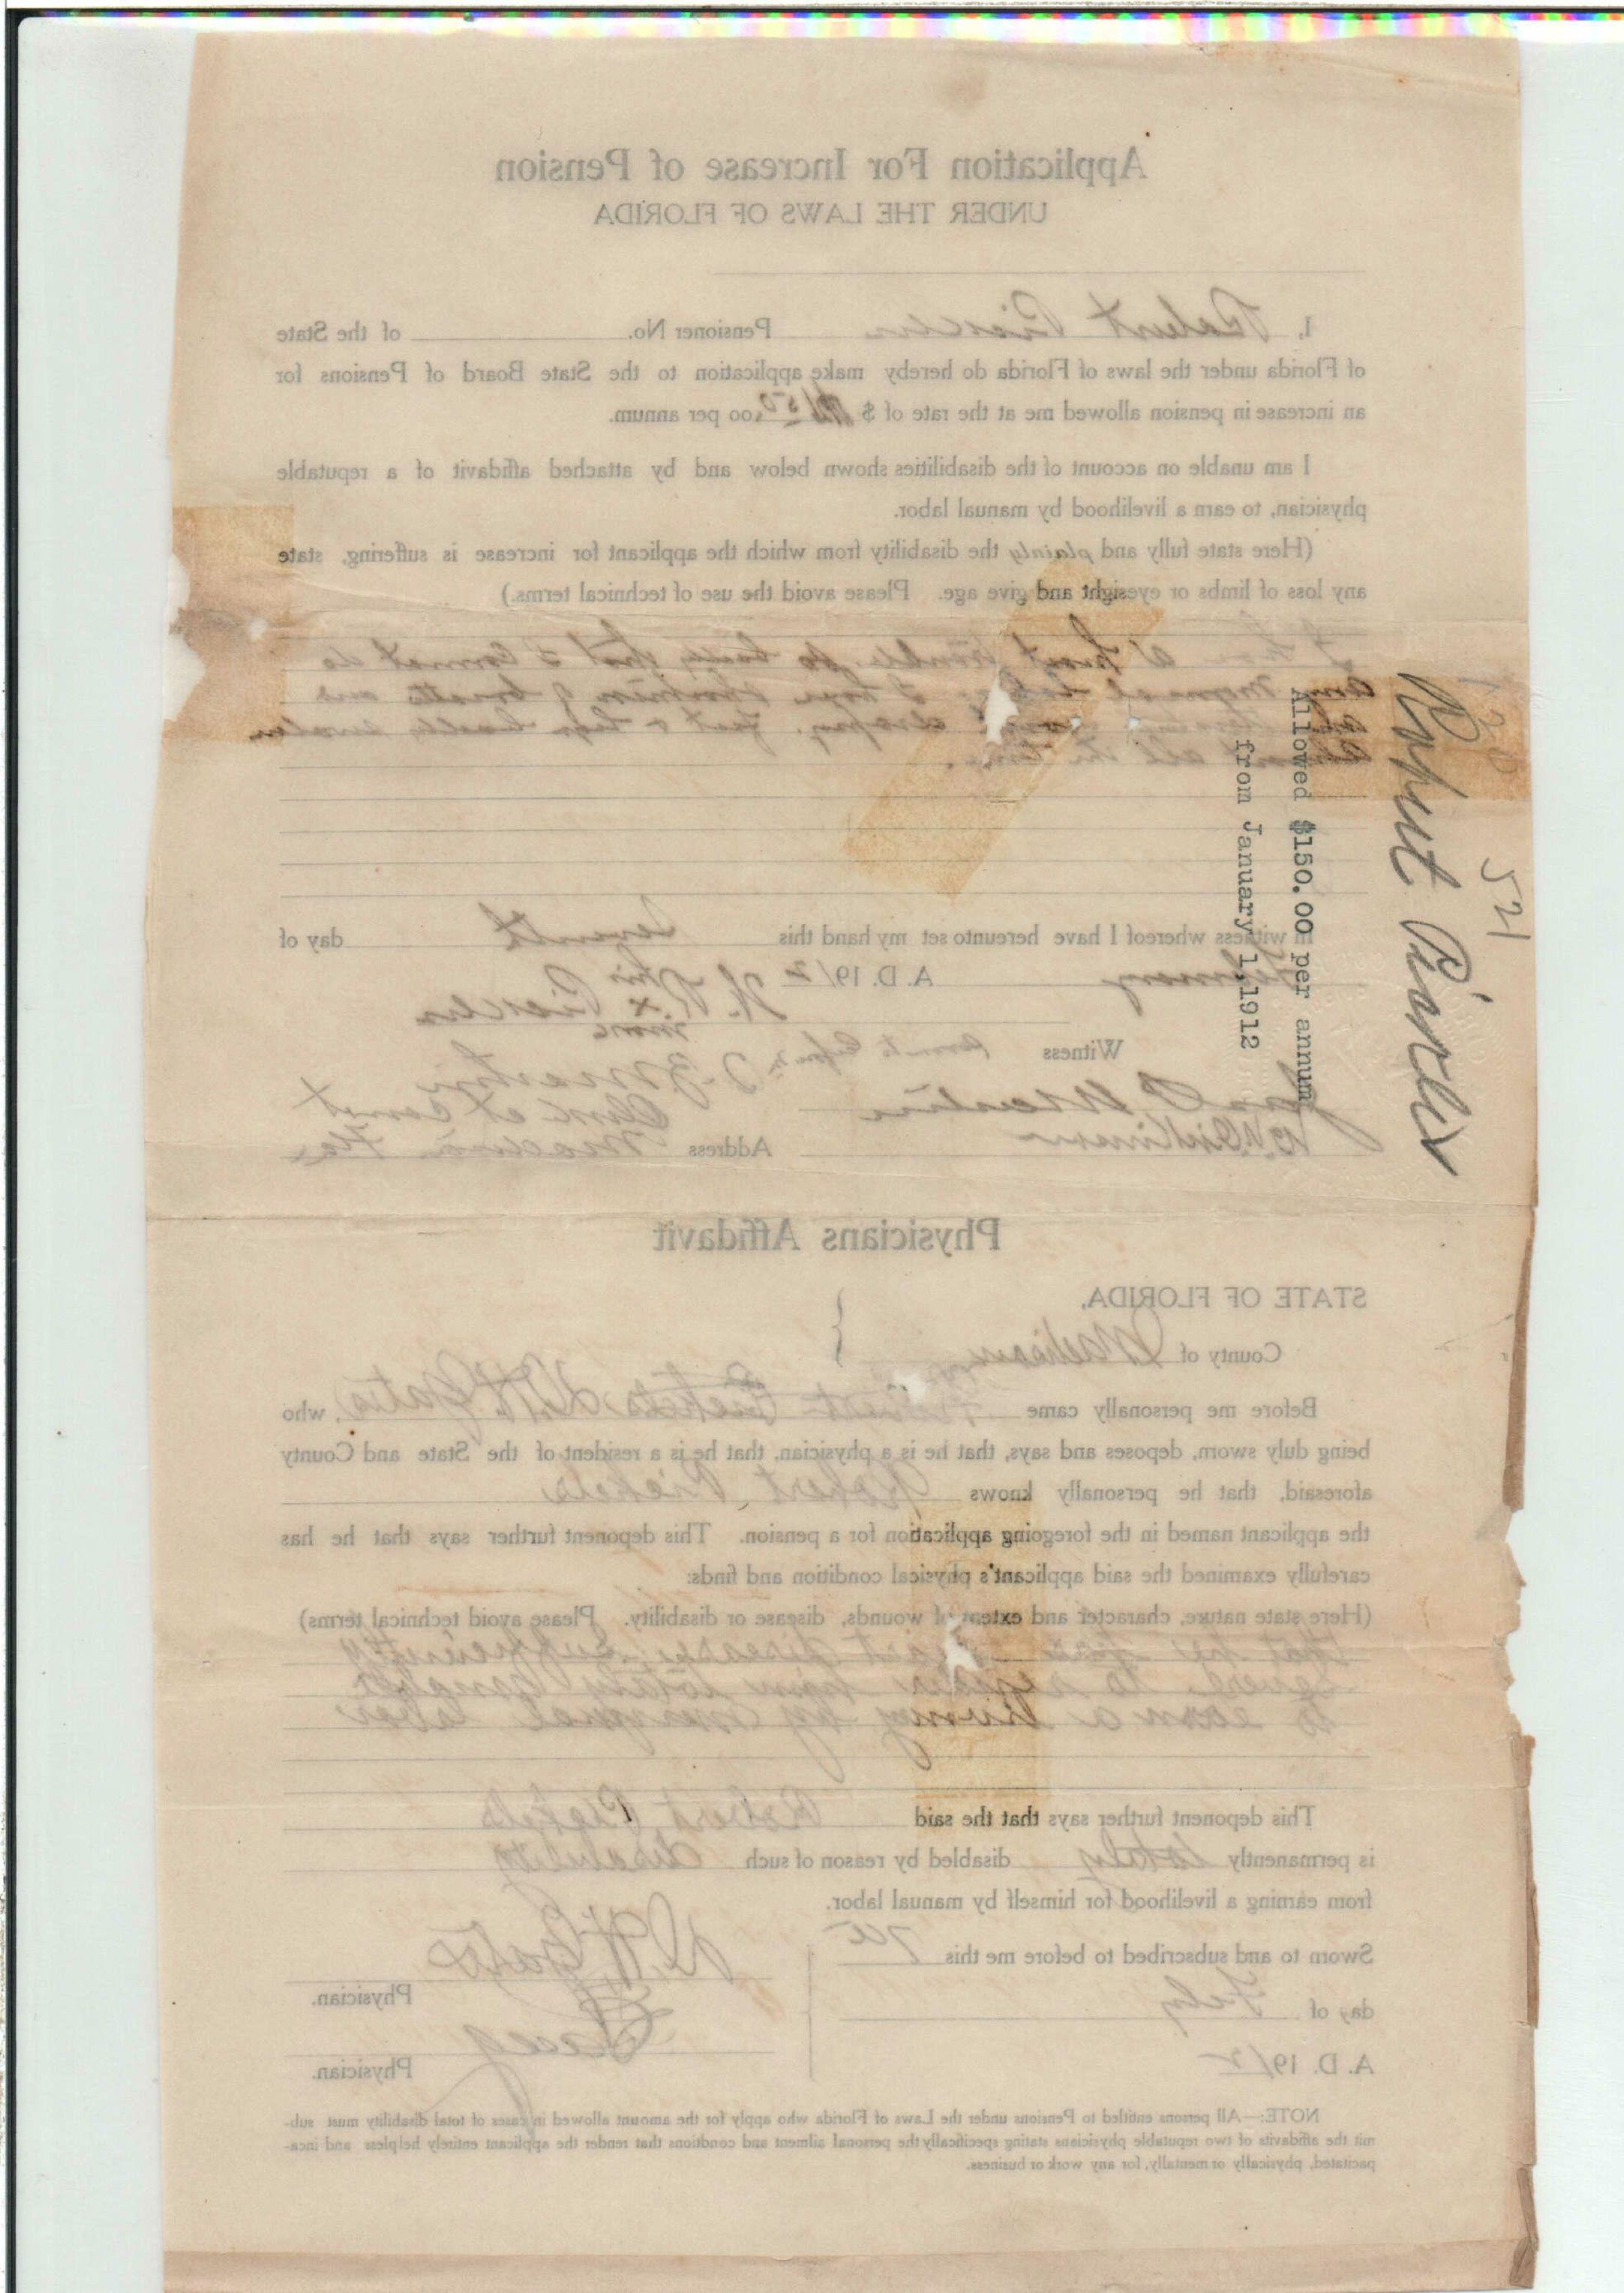 Application For Increase of Pension
UNDER THE LAWS OF FLORIDA
I, Robert Pickles Pensioner No. of the State
of Florida under the laws of Florida do hereby make application to the State Board of Pensions for
an increase in pension allowed me at the rate of $ 150.00 per annum.
I am unable on account of the disabilities shown below and by attached affidavit of a reputable
physician, to earn a livelihood by manual labor.
(Here state fully and plainly the disability from which the applicant for increase is suffering, state
any loss of limbs or eyesight and give age. Please avoid the use of technical terms.)
I have heart trouble so badly that I cannot do
any manual labor I have shortness of breath and
dropsy. feet & legs badly swolen
almost all the time.
In witness whereof I have hereunto set my hand this seventh day of
February A. D. 1912
his
R. x Pickles
mark
Witness
Martin
Clerk ct Court
Address Madison Fla
Physicians Affidavit
STATE OF FLORIDA,
County of Madison
Before me personally came Robert Pickels D. H. Yates, who
being duly sworn, deposes and says, that he is a physician, that he is a resident of the State and County
aforesaid, that he personally knows Robert Pickels
the applicant named in the foregoing application for a pension. This deponent further says that he has
carefully examined the said applicant's physical condition and finds:
(Here state nature, character and extent of wounds, disease or disability. Please avoid technical terms)
that he has heart disease, sufficiently
severe to render him totaly unable
to earn a living by manual labor
This deponent further says that the said Robert Pickels
is permanently totaly disabled by reason of such disability
from earning a livelihood for himself by manual labor.
Sworn to and subscribed to before me this 7th
D. H. Yates
Physician.
day of Feby
Physician.
A. D. 1912
NOTE:—All persons entitled to Pensions under the Laws of Florida who apply for the amount allowed in cases of total disability must sub-
mit the affidavits of two reputable physicians stating specifically the personal ailment and conditions that render the applicant entirely helpless and inca-
pacitated, physically or mentally, for any work or business.
521
Robert Pickles
Allowed $150.00 per annum
from January 1,1912